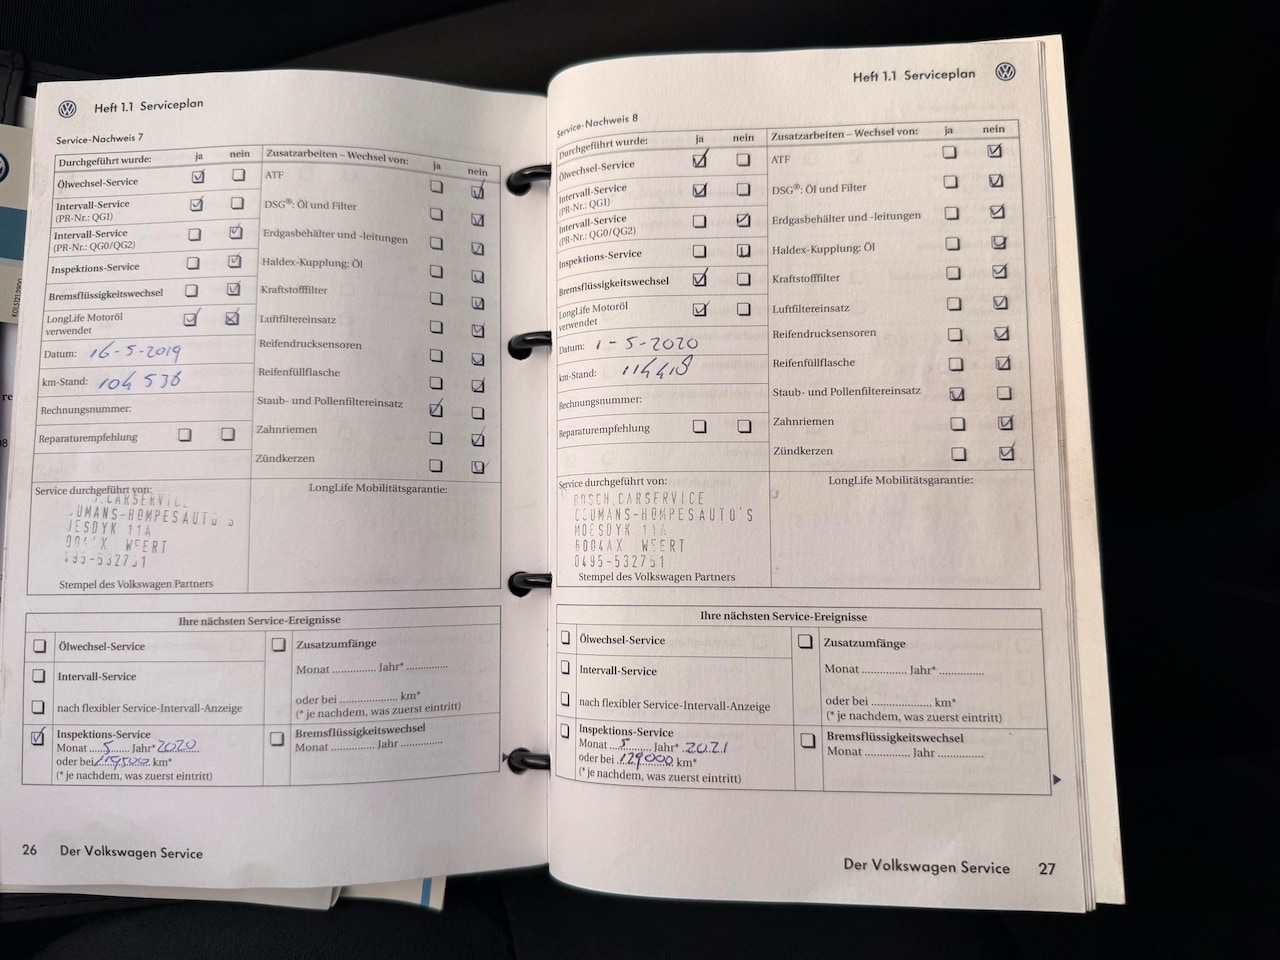 Heft 1.1 Serviceplan
Service-Nachweis 7
Durchgeführt wurde: ja nein
Ölwechsel-Service
Intervall-Service
(PR-Nr.: QG1)
Intervall-Service
(PR-Nr.: QG0/QG2)
Inspektions-Service
Bremsflüssigkeitswechsel
LongLife Motoröl
verwendet
Datum: 16-5-2019
km-Stand: 104 536
Rechnungsnummer:
Reparaturempfehlung
Zusatzarbeiten – Wechsel von: ja nein
ATF
DSG®: Öl und Filter
Erdgasbehälter und -leitungen
Haldex-Kupplung: Öl
Kraftstofffilter
Luftfiltereinsatz
Reifendrucksensoren
Reifenfüllflasche
Staub- und Pollenfiltereinsatz
Zahnriemen
Zündkerzen
Service durchgeführt von:
.CARSERVIC
UMANS-HOMPESAUTO'S
JESDYK 11A
WEERT
495-532751
Stempel des Volkswagen Partners
LongLife Mobilitätsgarantie:
Ihre nächsten Service-Ereignisse
Ölwechsel-Service
Intervall-Service
nach flexibler Service-Intervall-Anzeige
Inspektions-Service
Monat 5 Jahr* 2020
oder bei 119500 km*
(* je nachdem, was zuerst eintritt)
Zusatzumfänge
Monat Jahr*
oder bei km*
(* je nachdem, was zuerst eintritt)
Bremsflüssigkeitswechsel
Monat Jahr
26 Der Volkswagen Service
Heft 1.1 Serviceplan
Service-Nachweis 8
Durchgeführt wurde: ja nein
Ölwechsel-Service
Intervall-Service
(PR-Nr.: QG1)
Intervall-Service
(PR-Nr.: QG0/QG2)
Inspektions-Service
Bremsflüssigkeitswechsel
LongLife Motoröl
verwendet
Datum: 1-5-2020
km-Stand: 114418
Rechnungsnummer:
Reparaturempfehlung
Zusatzarbeiten – Wechsel von: ja nein
ATF
DSG®: Öl und Filter
Erdgasbehälter und -leitungen
Haldex-Kupplung: Öl
Kraftstofffilter
Luftfiltereinsatz
Reifendrucksensoren
Reifenfüllflasche
Staub- und Pollenfiltereinsatz
Zahnriemen
Zündkerzen
Service durchgeführt von:
BOSCH.CARSERVICE
COUMANS-HOMPESAUTO'S
MOESDYK 11A
6004AX WEERT
0495-532751
Stempel des Volkswagen Partners
LongLife Mobilitätsgarantie:
Ihre nächsten Service-Ereignisse
Ölwechsel-Service
Intervall-Service
nach flexibler Service-Intervall-Anzeige
Inspektions-Service
Monat 5 Jahr* 2021
oder bei 129000 km*
(* je nachdem, was zuerst eintritt)
Zusatzumfänge
Monat Jahr*
oder bei km*
(* je nachdem, was zuerst eintritt)
Bremsflüssigkeitswechsel
Monat Jahr
Der Volkswagen Service 27